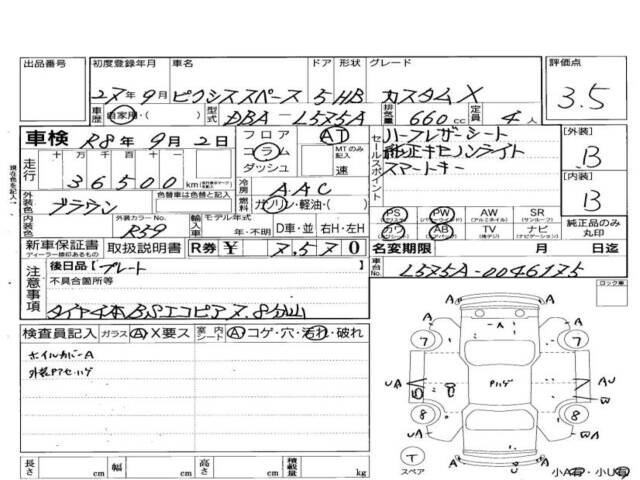 出品番号 初度登録年月 車名 ドア 形状 グレード 評価点
27年9月 ピクシススペース 5 HB カスタムX 3.5
車歴 自家用・( ) 型式 DBA-L575A 排気量 660cc 定員 4人
車検 R8年9月2日 フロア コラム ダッシュ AT MTのみ記入 速
セールスポイント ハーフレザーシート
純正キセノンライト
スマートキー
[外装] B
[内装] B
走行 十万 万 千 百 十 一
36500 km
冷房 AAC
外装色 ブラウン 色替車は色替と記入 燃料 ガソリン・軽油・( )
内装色 外装カラーNo. R59 輸入車 モデル年式 年・不明 D車・並 右H・左H
PS PW AW SR
(パワーウインド) (アルミホイル) (サンルーフ)
カワ AB TV ナビ
(エアバック) (ナビゲーション)
純正品のみ丸印
新車保証書 取扱説明書 R券 ¥ 7570 名変期限 月 日迄
ディーラー捺印あるもの
車台No. L575A-0046175
注意事項 後日品[プレート
不具合箇所等
タイヤ4本BSエコピア7.8分山
ロック車
検査員記入 ガラス A X要ス 室内シート A コゲ・穴・汚れ・破れ
ホイルカバーA
A U
7 7
UA AU
W
8 8
UA WA
T スペア
A U A
小A有・小U有
長さ cm 幅 cm 高さ cm 積載量 kg
現在色を記入